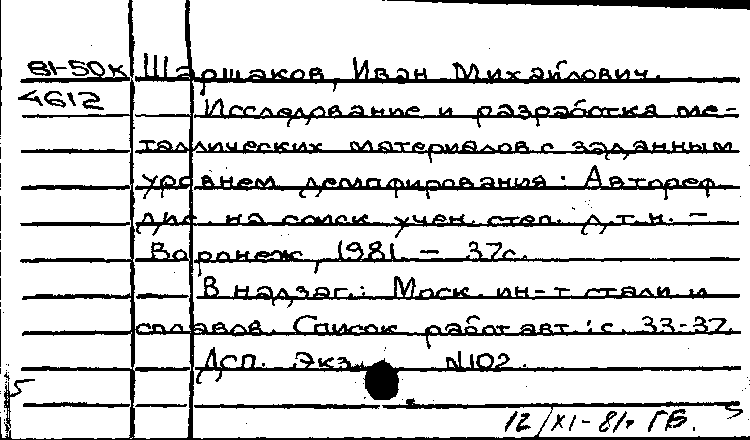 81-50к Шаршаков, Иван Михайлович.
4612 Исследование и разработка ме-
таллических материалов с заданным
уровнем демпфирования: Автореф.
дис. на соиск. учен. степ. д.т.н. –
Воронеж, 1981. – 37с.
В надзаг.: Моск. ин-т стали и
сплавов. Список работ авт.: с. 33-37.
Дсп. Экз. N102.
12/XI-81г ГБ.